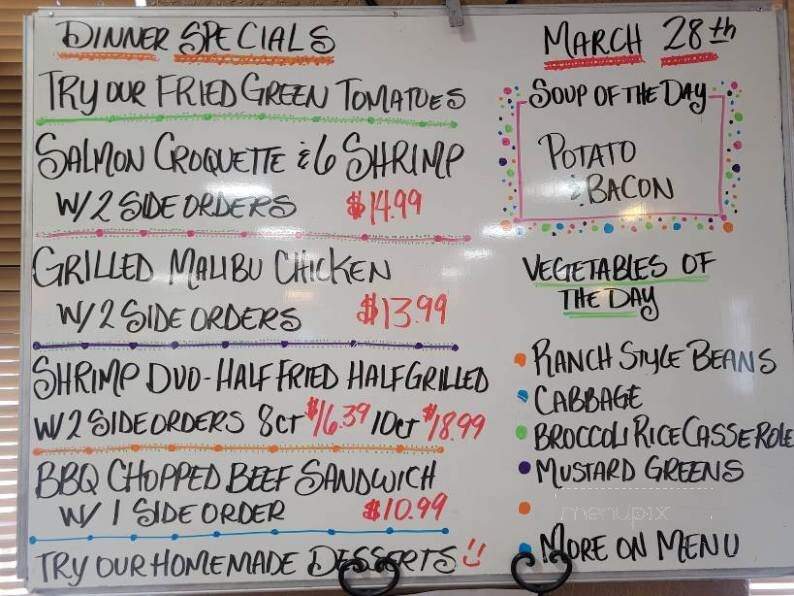 DINNER SPECIALS
TRY OUR FRIED GREEN TOMATOES
SALMON CROQUETTE & 6 SHRIMP
W/ 2 SIDE ORDERS $14.99
GRILLED MALIBU CHICKEN
W/ 2 SIDE ORDERS $13.99
SHRIMP DUO - HALF FRIED HALF GRILLED
W/ 2 SIDE ORDERS 8CT $16.39 10CT $18.99
BBQ CHOPPED BEEF SANDWICH
W/ 1 SIDE ORDER $10.99
TRY OUR HOMEMADE DESSERTS
MARCH 28th
SOUP OF THE DAY
POTATO
& BACON
VEGETABLES OF
THE DAY
RANCH STYLE BEANS
CABBAGE
BROCCOLI RICE CASSEROLE
MUSTARD GREENS
menupix
MORE ON MENU